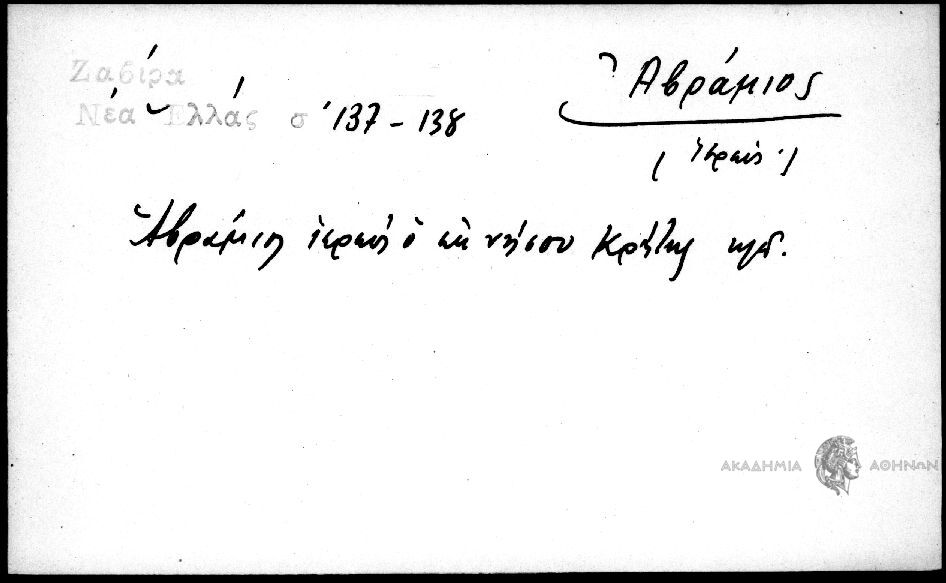 Ζαβίρα
Νέα Ἑλλάς σ. 137 - 138
Ἀβράμιος
(ἱερεύς)
Ἀβράμιος ἱερεύς ὁ ἐκ νήσου Κρήτης κλπ.
ΑΚΑΔΗΜΙΑ ΑΘΗΝΩΝ